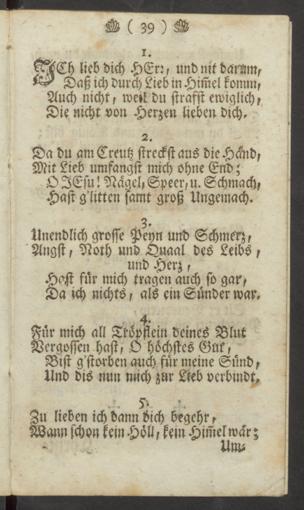 ( 39 )
1.
ICh lieb dich HErr, und nit darum,
Daß ich durch Lieb in Him̅el komm,
Auch nicht, weil du straffst ewiglich,
Die nicht von Herzen lieben dich.
2.
Da du am Creutz streckst aus die Händ,
Mit Lieb umfangst mich ohne End;
O JEsu! Nägel, Speer, u. Schmach,
Hast g'litten samt groß Ungemach.
3.
Unendlich grosse Peyn und Schmerz,
Angst, Noth und Quaal des Leibs,
und Herz,
Hast für mich tragen auch so gar,
Da ich nichts, als ein Sünder war.
4.
Für mich all Tröpflein deines Blut
Vergossen hast, O höchstes Gut,
Bist g'storben auch für meine Sünd,
Und dis nun mich zur Lieb verbindt.
5.
Zu lieben ich dann dich begehr,
Wann schon kein Höll, kein Him̅el wär;
Um-